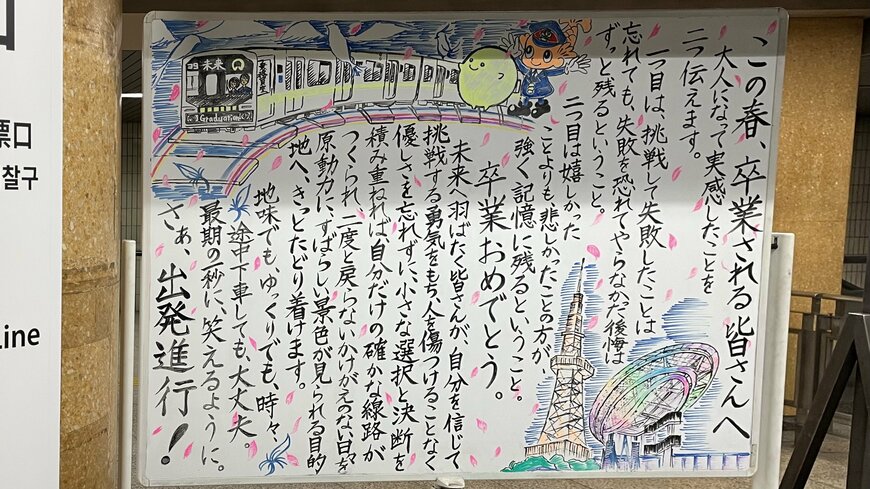 この春、卒業される皆さんへ
大人になって実感したことを
二つ伝えます。
一つ目は、挑戦して失敗したことは
忘れても、失敗を恐れてやらなかった後悔は
ずっと残るということ。
二つ目は嬉しかった
ことよりも、悲しかったことの方が、
強く記憶に残るということ。
卒業おめでとう。
未来へ羽ばたく皆さんが、自分を信じて
挑戦する勇気をもち、人を傷つけることなく
優しさを忘れずに、小さな選択と決断を
積み重ねれば、自分だけの確かな線路が
つくられ、二度と戻らないかけがえのない日々を
原動力に、すばらしい景色が見られる目的
地へ、きっとたどり着けます。
地味でも、ゆっくりでも、時々、
途中下車しても、大丈夫。
最期の秒に、笑えるように。
さぁ、出発進行!
未来
Graduation
票口
札口
Line